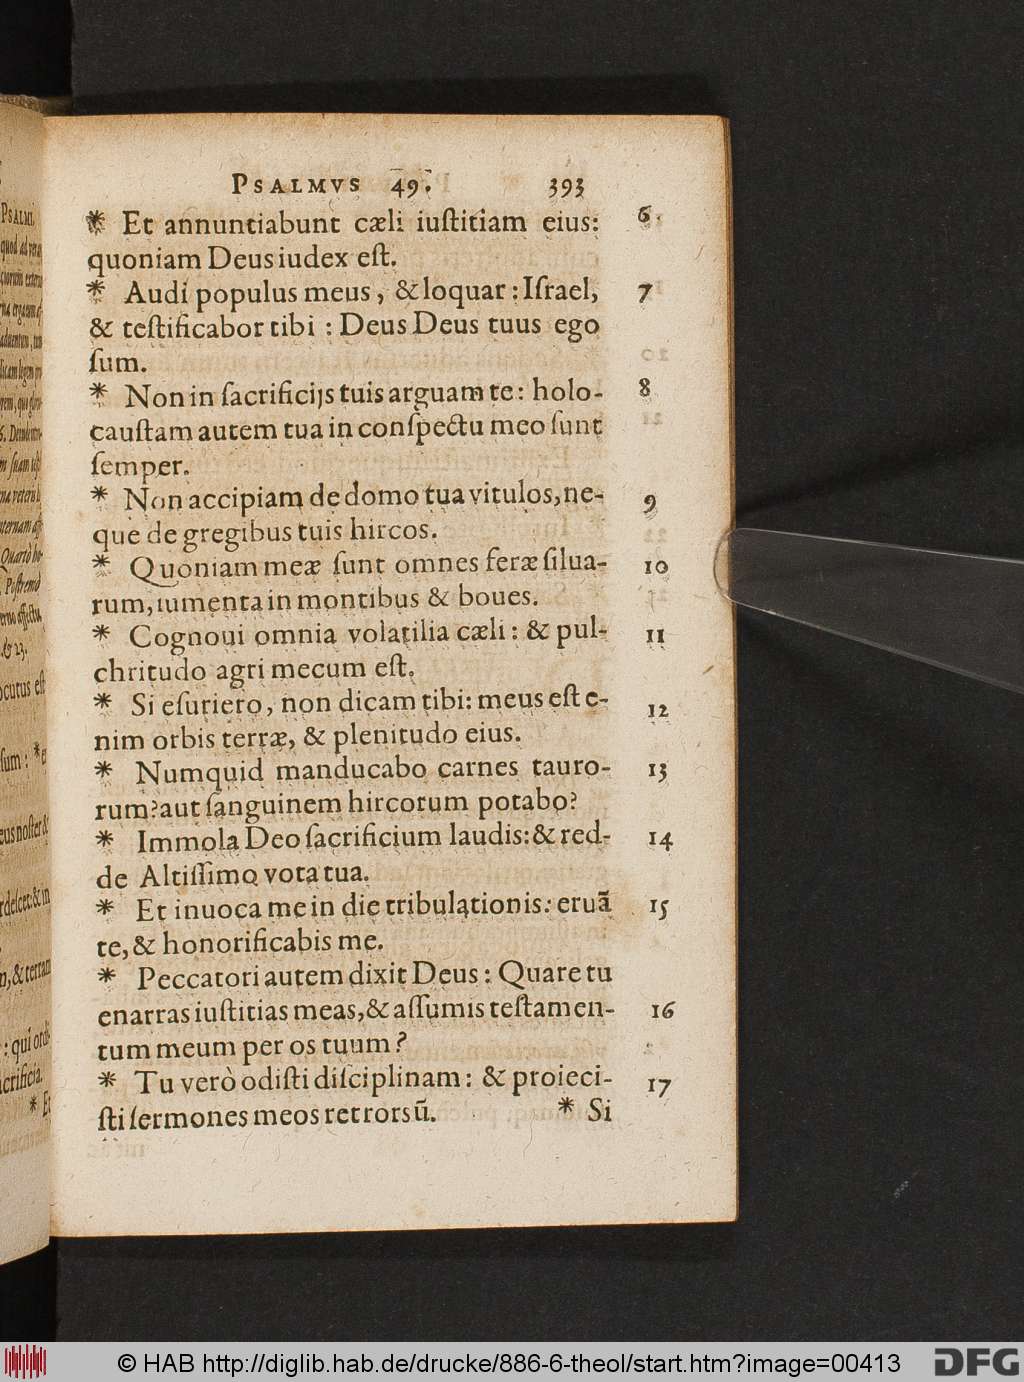 PSALMI,
quod ad
* Et
PSALMVS 49. 393
* Et annuntiabunt cæli iuſtitiam eius: 6
quoniam Deus iudex eſt.
* Audi populus meus, & loquar: Iſrael, 7
& teſtificabor tibi: Deus Deus tuus ego
ſum.
* Non in ſacrificijs tuis arguam te: holo- 8
cauſtam autem tua in conſpectu meo ſunt
ſemper.
* Non accipiam de domo tua vitulos, ne- 9
que de gregibus tuis hircos.
* Quoniam meæ ſunt omnes feræ ſilua- 10
rum, iumenta in montibus & boues.
* Cognoui omnia volatilia cæli: & pul- 11
chritudo agri mecum eſt.
* Si eſuriero, non dicam tibi: meus eſt e- 12
nim orbis terræ, & plenitudo eius.
* Numquid manducabo carnes tauro- 13
rum? aut ſanguinem hircorum potabo?
* Immola Deo ſacrificium laudis: & red- 14
de Altiſſimo vota tua.
* Et inuoca me in die tribulationis: eruā 15
te, & honorificabis me.
* Peccatori autem dixit Deus: Quare tu
enarras iuſtitias meas, & aſſumis teſtamen- 16
tum meum per os tuum?
* Tu verò odiſti diſciplinam: & proieci- 17
ſti ſermones meos retrorsū. * Si
© HAB http://diglib.hab.de/drucke/886-6-theol/start.htm?image=00413 DFG